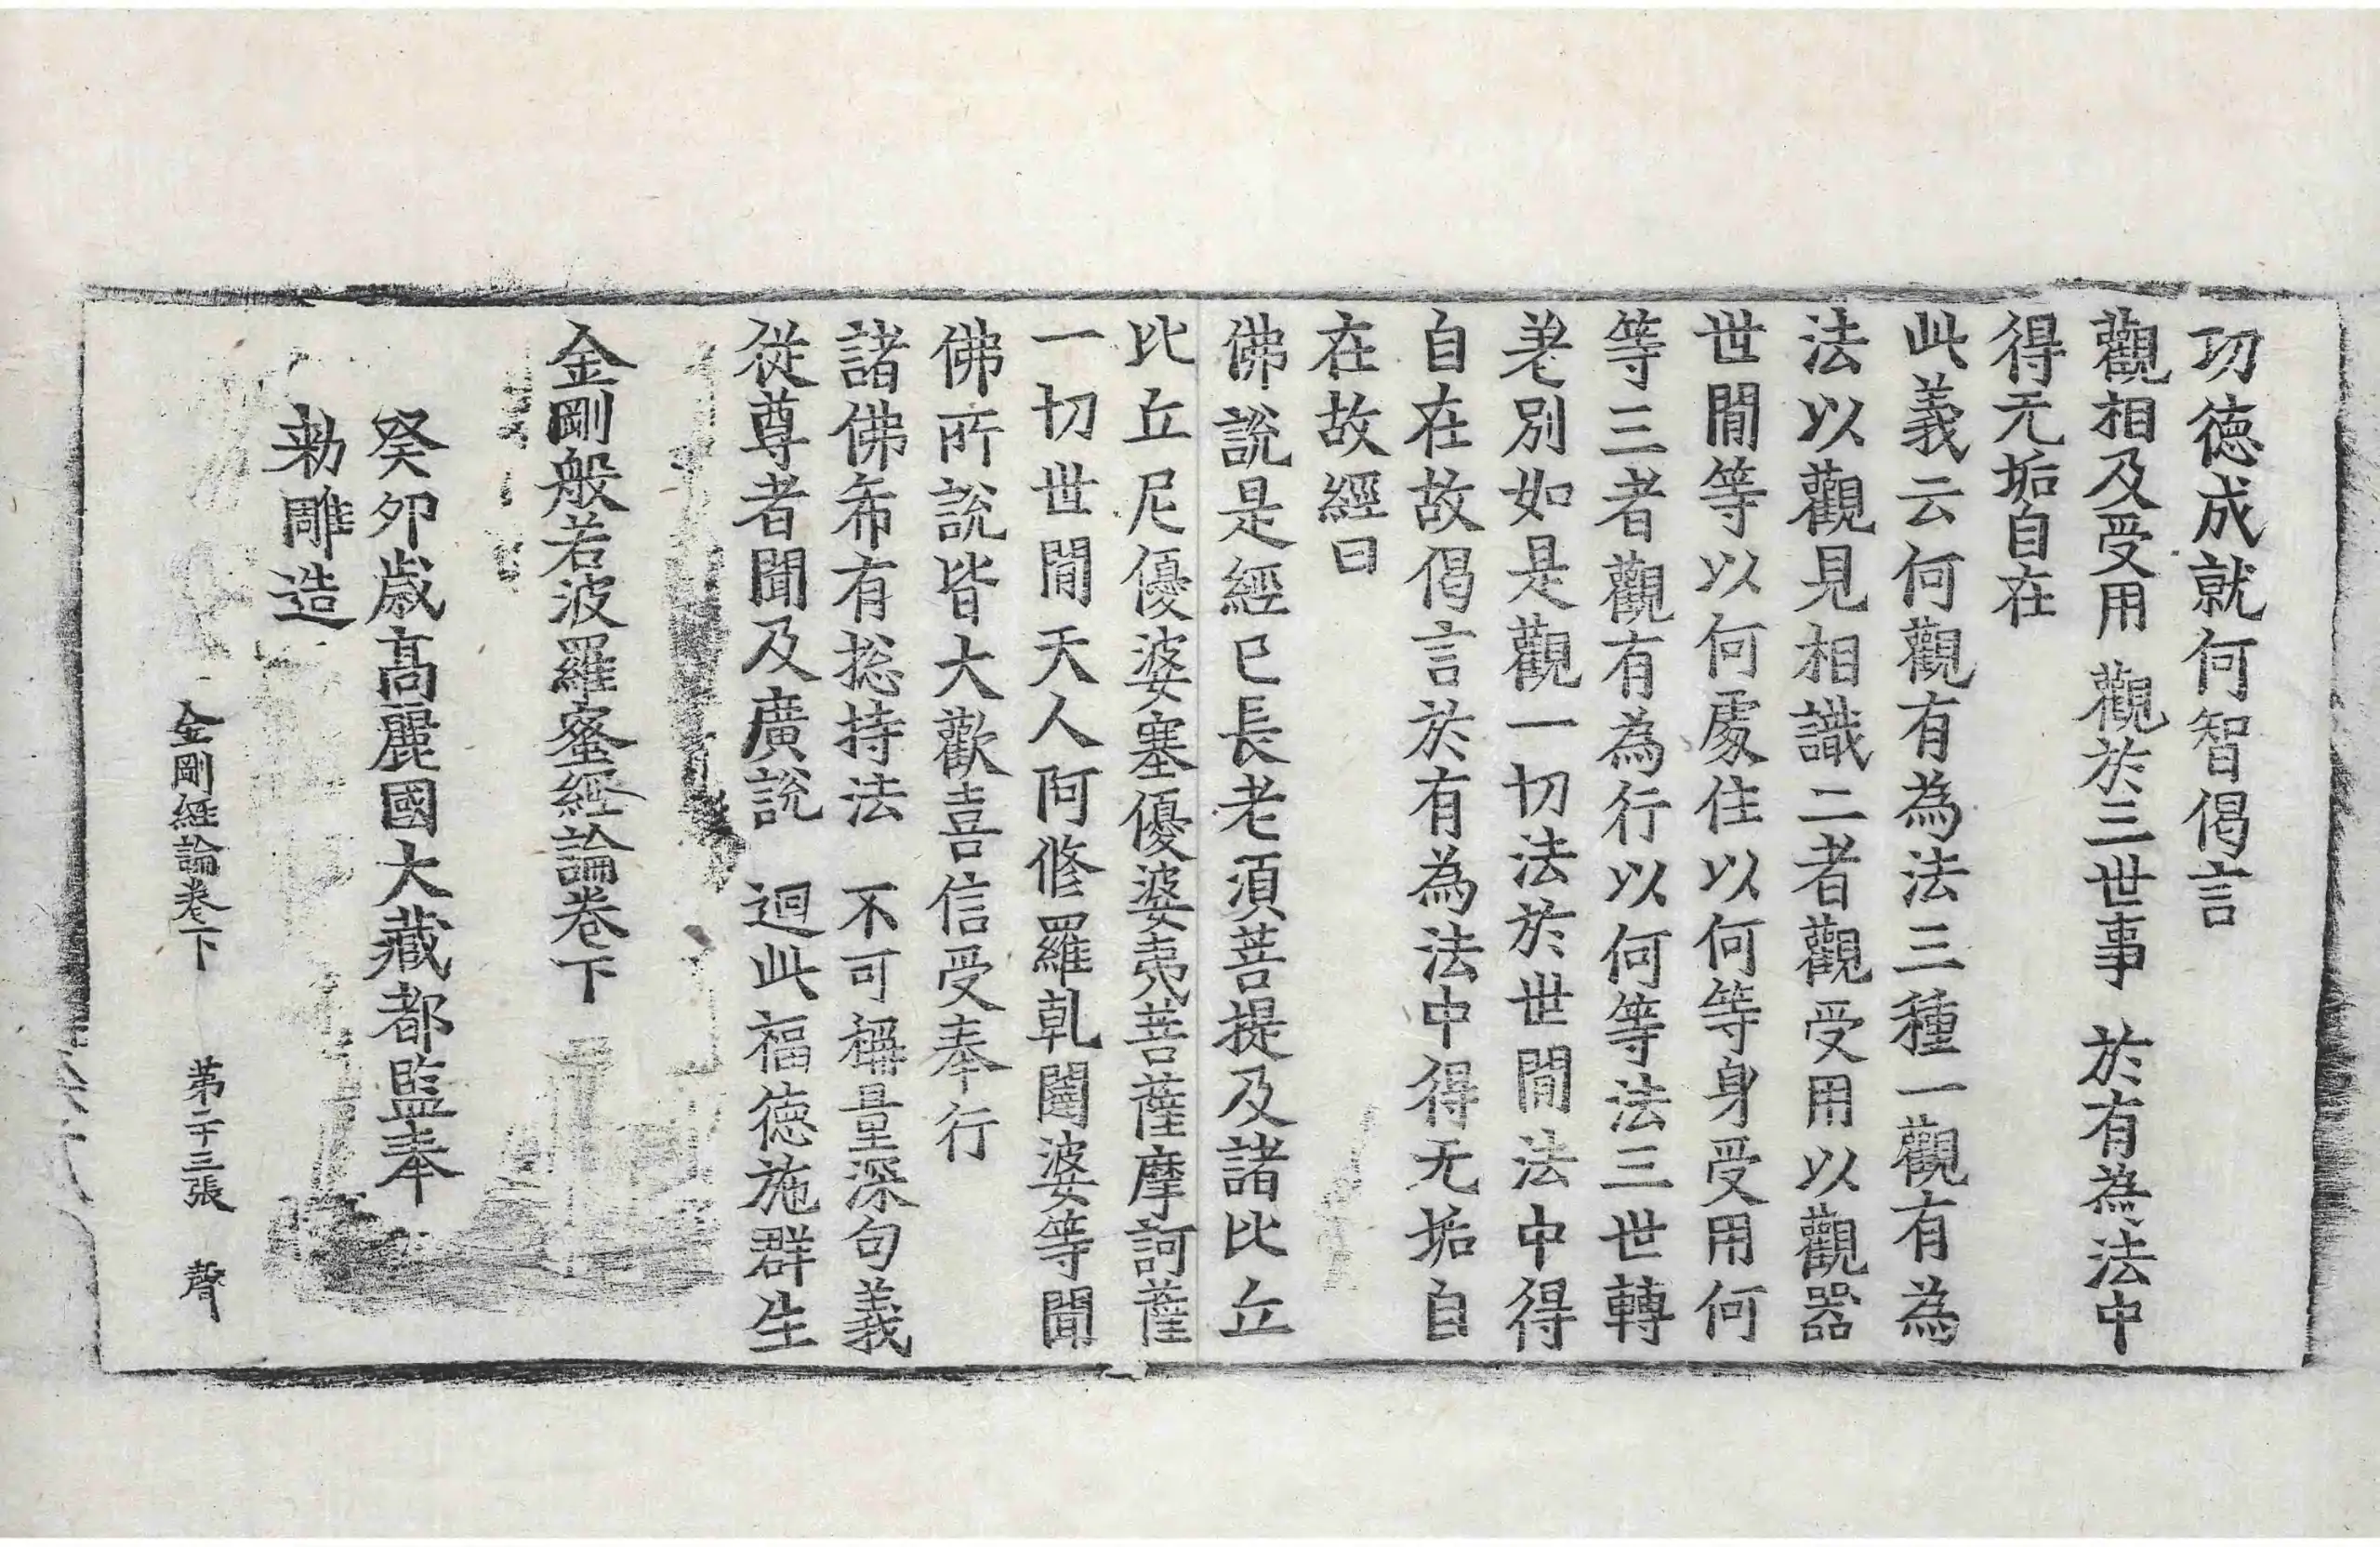 功徳成就何智偈言
觀相及受用 觀於三世事 於有為法中
得无垢自在
此義云何觀有為法三種一觀有為
法以觀見相識二者觀受用以觀器
世閒等以何處住以何等身受用何
等三者觀有為行以何等法三世轉
差別如是觀一切法於世閒法中得
自在故偈言於有為法中得无垢自
在故經曰
佛說是經已長老湏菩提及諸比丘
比丘尼優婆塞優婆夷菩薩摩訶薩
一切世閒天人阿脩羅乹闥婆等聞
佛所說皆大歡喜信受奉行
諸佛希有揔持法 不可稱量深句義
從尊者聞及廣說 迴此福德施群生
金剛般若波羅蜜經論卷下
癸卯歲高麗國大藏都監奉
勑雕造
金剛經論卷下 第二十三張 聲